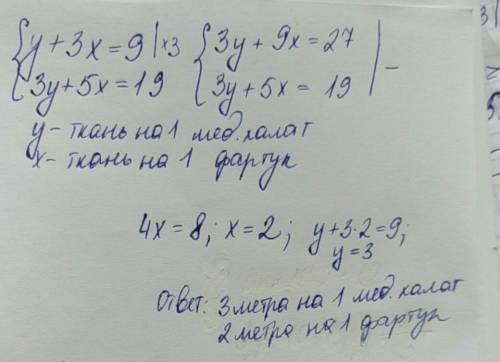 { y + 3x = 9 | x3 { 3y + 9x = 27 |
{ 3y + 5x = 19 { 3y + 5x = 19 | –
y - ткань на 1 мед. халат
x - ткань на 1 фартук
4x = 8; x = 2; y + 3·2 = 9;
y = 3
ответ: 3 метра на 1 мед. халат
2 метра на 1 фартук
3
5